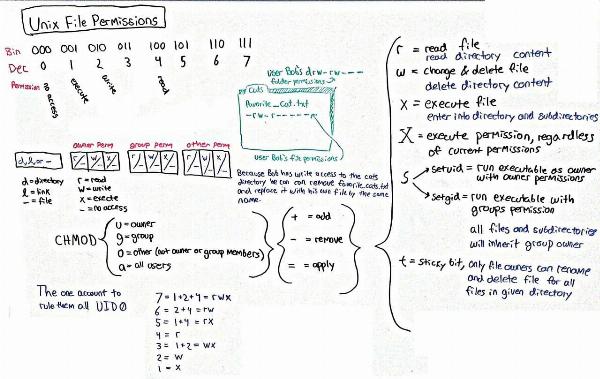 Unix File Permissions
Bin 000 001 010 011 100 101 110 111
Dec 0 1 2 3 4 5 6 7
Permission no access execute write read
User Bob's drw-rw----
folder permissions
Cats
favorite_cat.txt
-rw-r-----
User Bob's file permissions
owner perm group perm other perm
d, l, or - r/- w/- x/- r/- w/- x/- r/- w/- x/-
d = directory
l = link
- = file
r = read
w = write
x = execte
- = no access
Because Bob has write access to the cats
directory he can can remove favorite_cats.txt
and replace it with his own file by the same
name.
CHMOD
u = owner
g = group
o = other (not owner or group members)
a = all users
+ = add
- = remove
= = apply
r = read file
read directory content
w = change & delete file
delete directory content
x = execute file
enter into directory and subdirectories
X = execute permission, regardless
of current permissions
s
setuid = run executable as owner
with owner permissions
setgid = run executable with
groups permission
all files and subdirectories
will inherit group owner
t = sticky bit, only file owners can rename
and delete file for all
files in given directory
The one account to
rule them all UID0
7 = 1+2+4 = rwx
6 = 2+4 = rw
5 = 1+4 = rx
4 = r
3 = 1+2 = wx
2 = w
1 = x